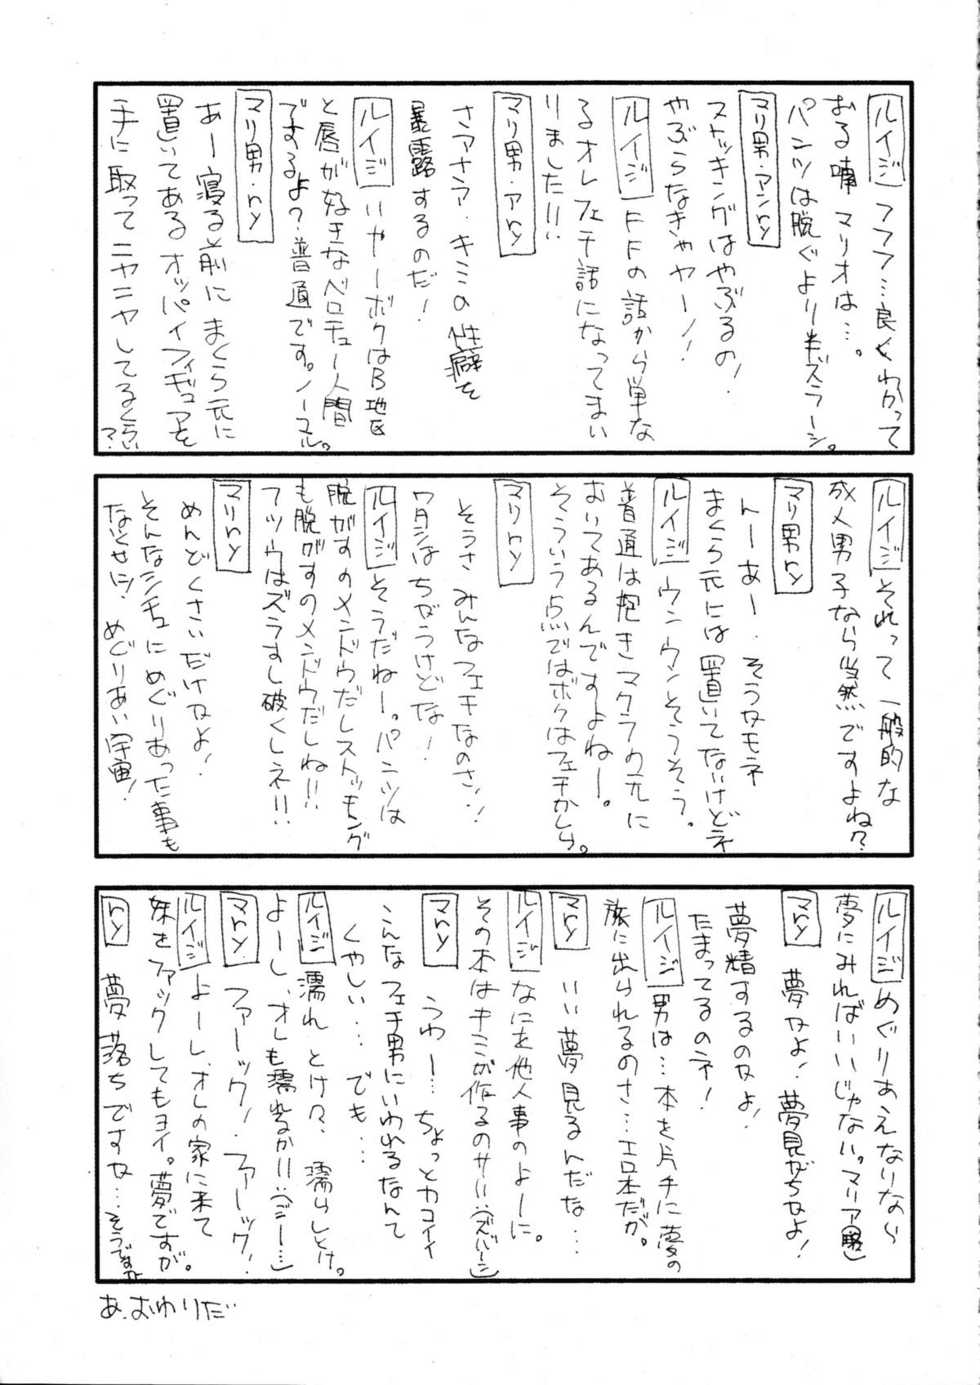 ルイジ フフフ…良くわかって
おる喃 マリオは…。
パンツは脱ぐより半ズラーシ。
マリ男・アンry
ストッキングはやぶるの!
やぶらなきゃヤーノ!
ルイジ FFの話から単な
るオレフェチ話になってまい
りました!!
マリ男・アry
さアさア・キミの性癖を
暴露するのだ!
ルイジ いやーボクはB地区
と唇が好きなベロチュー人間
でするよ?普通です。ノーマル。
マリ男・ry
あー寝る前にまくら元に
置いてあるオッパイフィギュアを
手に取ってニヤニヤしてるくらい?
ルイジ それって一般的な
成人男子なら当然ですよね?
マリ男ry
んーあー・そうなモネ
まくら元には置いてないけどネ
ルイジ ウンウンそうそう。
普通は抱きマクラの元に
おいてあるんですよねー。
そういう点ではボクはフェチかしら。
マリry
そうさみんなフェチなのさ!!
ワタシはちがうけどな!
ルイジ そうだねー。パンツは
脱がすのメンドウだしストッキング
も脱がすのメンドウだしね!!
フツウはズラすし破くしネ!!
マリry
めんどくさいだけなよ!
そんなシチュにめぐりあった事も
なくせに!めぐりあい宇宙!
ルイジ めぐりあえなりなら
夢にみればいいじゃない。マリア(略)
マry
夢なよ!夢見がちなよ!
夢精するのなよ!
たまってるのネ!
ルイジ 男は…本を片手に夢の
旅に出られるのさ…エロ本だが。
マry
いい夢見るんだな…
ルイジ なにを他人事のよーに。
その本はキミが作るのサ!!(ズバーン)
マry
うわー…ちょっとカコイイ
こんなフェチ男にいわれるなんて
くやしい…でも…
ルイジ 濡れとけ?、濡らしとけ。
よーし、オレも濡れるか!!(ジー…)
マry.
ファーック!ファーック!
ルイジ よーし、オレの家に来て
妹をファックしてもヨイ。夢ですが。
ry 夢落ちですな…そうですな
あ、おわりだ